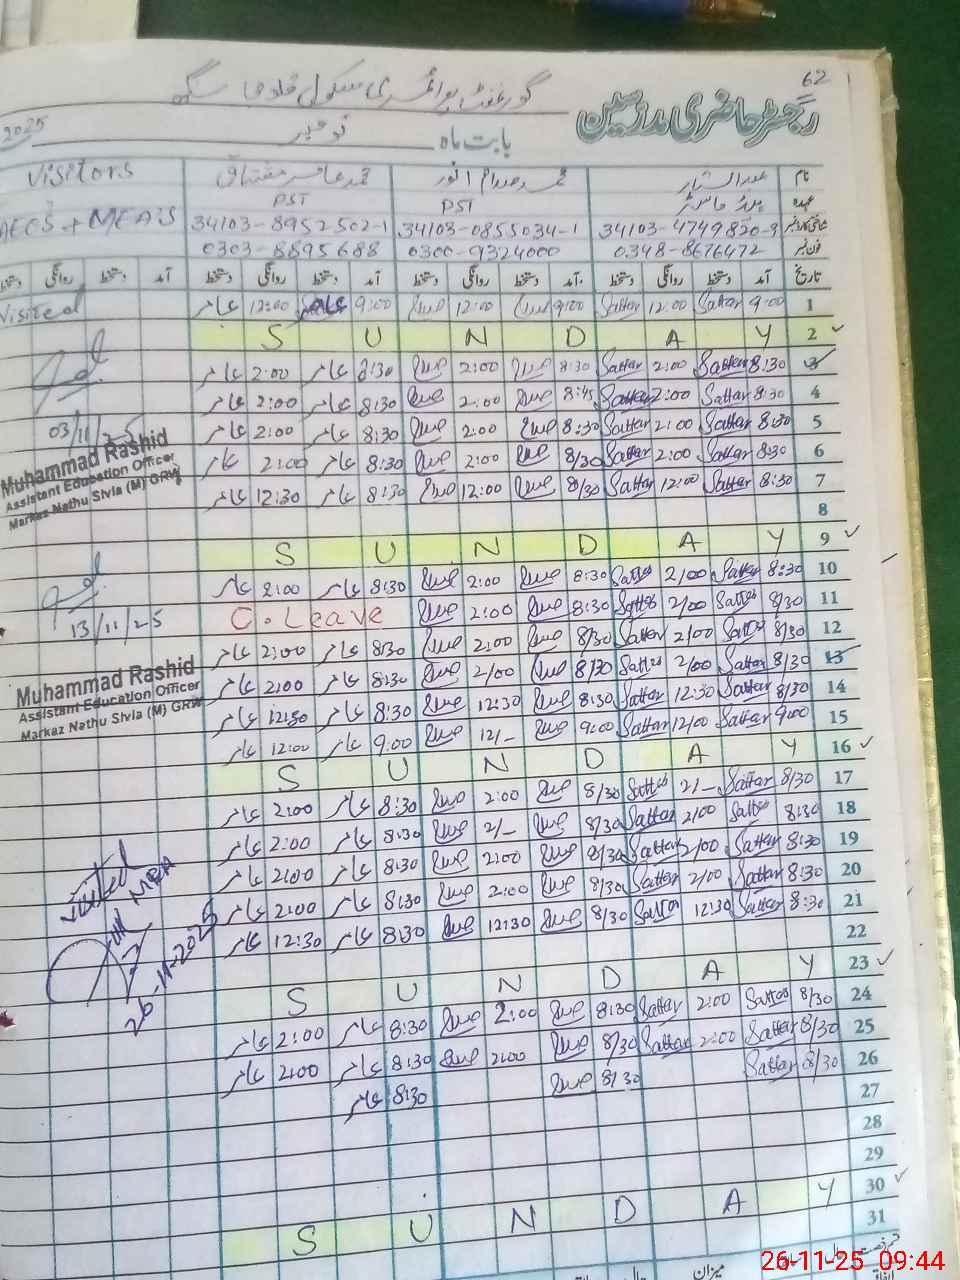 62
گورنمنٹ پرائمری سکول
رجسٹر حاضری مدرسین
بابت ماہ نومبر 2025
نام عبدالستار محمد صدام انور محمد عامر مشتاق Visitors
عہدہ ہیڈ ماسٹر PST PST AEOS + MEA'S
شناختی کارڈ نمبر 34103-4749820-9 34103-0855034-1 34103-8952502-1
فون نمبر 0348-8676472 0300-9324000 0303-8895688
تاریخ آمد دستخط روانگی دستخط آمد دستخط روانگی دستخط آمد دستخط روانگی دستخط آمد دستخط روانگی دستخط
Visited عامر 12:00 عامر 9:00 12:00 9:00 Sattar 12:00 Sattar 9:00 1
S U N D A Y 2
عامر 2:00 عامر 8:30 2:00 8:30 Sattar 2:00 Sattar 8:30 3
عامر 2:00 عامر 8:30 2:00 8:45 Sattar 2:00 Sattar 8:30 4
03/11/25 عامر 2:00 عامر 8:30 2:00 8:30 Sattar 2:00 Sattar 8:30 5
عامر 2:00 عامر 8:30 2:00 8/30 Sattar 2:00 Sattar 8:30 6
عامر 12:30 عامر 8:30 12:00 8/30 Sattar 12:00 Sattar 8:30 7
Muhammad Rashid
Assistant Education Officer
Markaz Nathu Sivia (M) GRW
8
S U N D A Y 9
عامر 2:00 عامر 8:30 2:00 8:30 Sattar 2/00 Sattar 8:30 10
C. Leave 2:00 8:30 Sattar 2/00 Sattar 8/30 11
13/11/25 عامر 2:00 عامر 8/30 2:00 8/30 Sattar 2/00 Sattar 8/30 12
عامر 2:00 عامر 8:30 2/00 8/30 Sattar 2/00 Sattar 8/30 13
عامر 12:30 عامر 8:30 12:30 8:30 Sattar 12:30 Sattar 8/30 14
عامر 12:00 عامر 9:00 12/- 9:00 Sattar 12/00 Sattar 9:00 15
Muhammad Rashid
Assistant Education Officer
Markaz Nathu Sivia (M) GRW
S U N D A Y 16
عامر 2:00 عامر 8:30 2:00 8/30 Sattar 2/- Sattar 8/30 17
عامر 2:00 عامر 8:30 2/- 8/30 Sattar 2/00 Sattar 8:30 18
عامر 2:00 عامر 8:30 2:00 8/30 Sattar 2/00 Sattar 8:30 19
عامر 2:00 عامر 8:30 2:00 8/30 Sattar 2/00 Sattar 8:30 20
عامر 12:30 عامر 8:30 12:30 8/30 Sattar 12:30 Sattar 8:30 21
22
visited
MEA
26-11-2025
S U N D A Y 23
عامر 2:00 عامر 8:30 2:00 8:30 Sattar 2:00 Sattar 8/30 24
عامر 2:00 عامر 8:30 2:00 8/30 Sattar 2:00 Sattar 8/30 25
عامر 8:30 8/30 Sattar 8/30 26
27
28
29
S U N D A Y 30
31
میزان
26-11-25 09:44